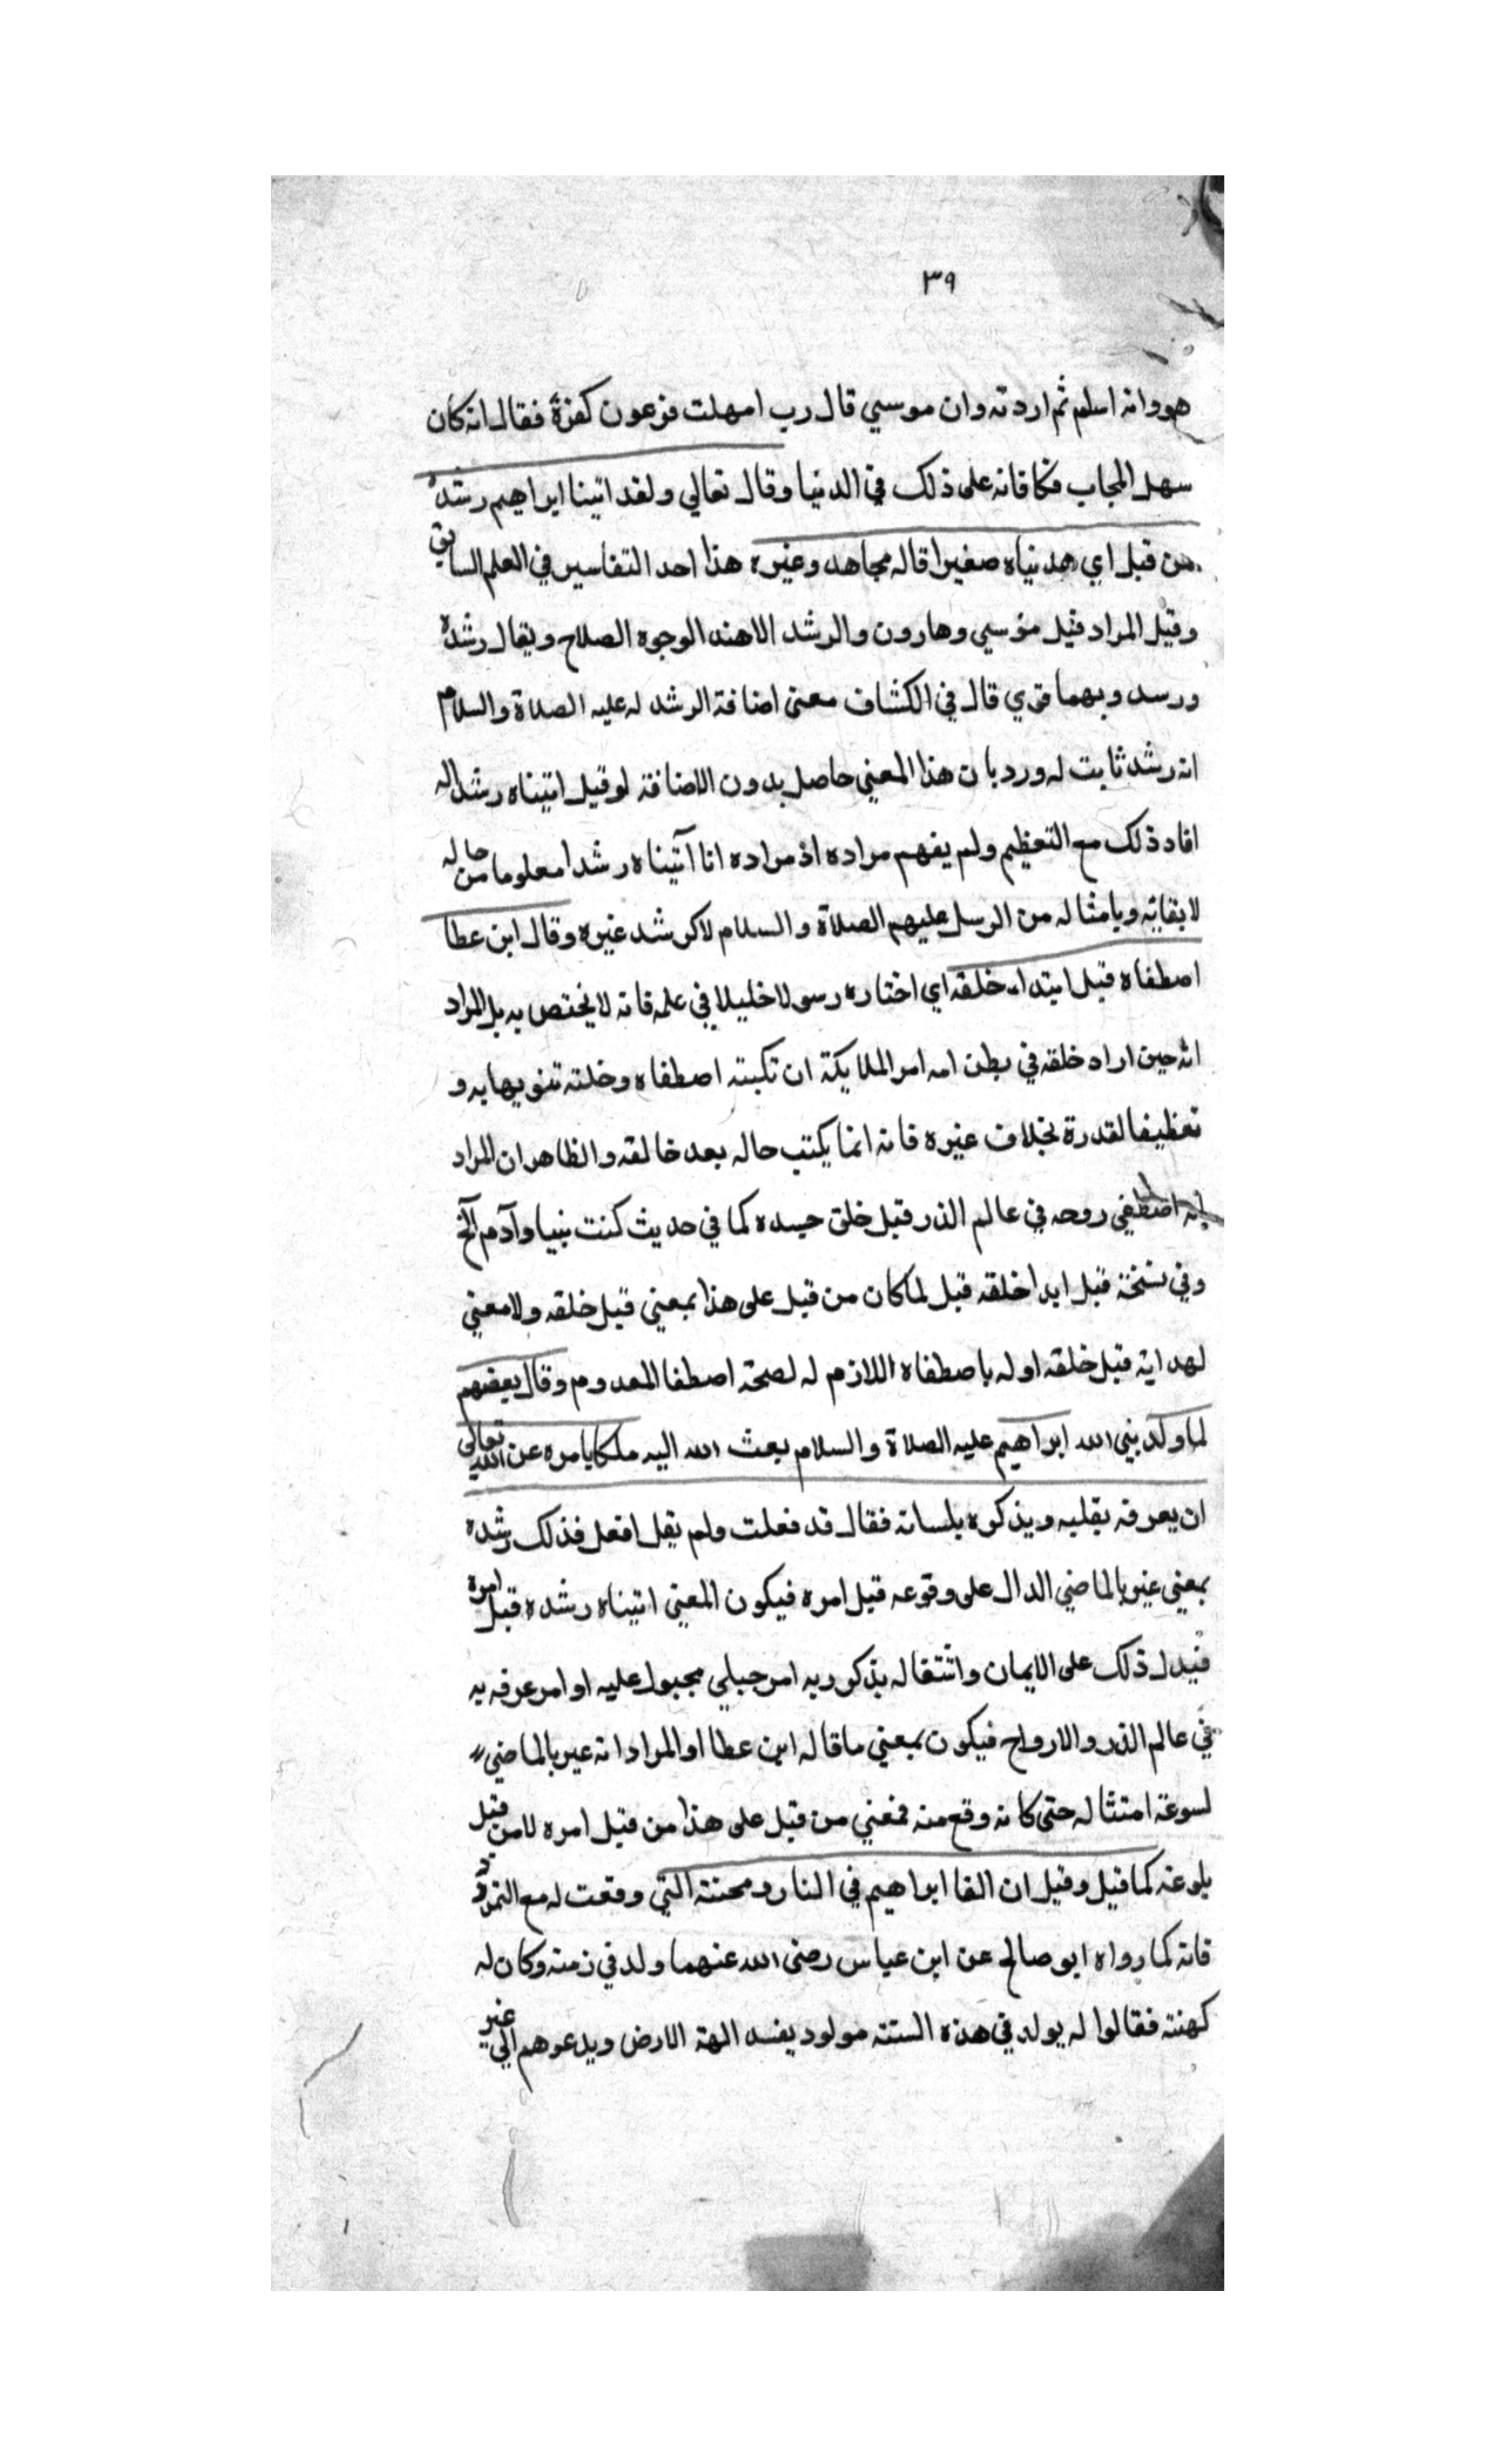 ٣٩
هو وانه اسلم ثم اردته وان موسي قال رب امهلت فرعون كفره فقال انه كان
سهل الحجاب فكافاته على ذلك في الدنيا وقال تعالي ولقد اتينا ابراهيم رشده
من قبل اي هديناه صغيرا قاله مجاهد وغيره هذا احد التفاسير في العلم السابق
وقيل المراد قبل موسي وهارون والرشد الاهتدا لوجوه الصلاح ويقال رشده
ورسد وبهما قري قال في الكشاف معنى اضافة الرشد له عليه الصلاة والسلام
انه رشد ثابت له ورد بان هذا المعني حاصل بدون الاضافة لو قيل اتيناه رشدا له
افاد ذلك مع التعظيم ولم يفهم مراده اذ مراده انا آتيناه رشدا معلوما من حاله
لايقا به وبامثاله من الرسل عليهم الصلاة والسلام لا كرشد غيره وقال ابن عطا
اصطفاه قبل ابتداء خلقه اي اختاره رسولا خليلا في علمه فانه لا يختص به بل المراد
انه حين اراد خلقه في بطن امه امر الملايكة ان تكبته اصطفاه وخلته تنويها به و
تعظيما لقدرة بخلاف غيره فانه انما يكتب حاله بعد خالقه والظاهر ان المراد
انه اصطفي روحه في عالم الذر قبل خلق جسده كما في حديث كنت نبيا وآدم الخ
وفي نسخة قبل ابدا خلقه قبل لما كان من قبل على هذا بمعني قبل خلقه ولا معني
لهدايته قبل خلقه اوله باصطفاه اللازم له لصحة اصطفا المعدوم وقال بعضهم
لما ولد بني الله ابراهيم عليه الصلاة والسلام بعث الله اليه ملكا يامره عن الله تعالي
ان يعرفه بقلبه ويذكره بلسانه فقال قد فعلت ولم يقل افعل فذلك رشده
بمعني عبر بالماضي الدال على وقوعه قبل امره فيكون المعني اتيناه رشده قبل امره
فيدل ذلك على الايمان واشتغاله بذكر ربه امر جبلي مجبول عليه او امر عرفه به
في عالم الذر والارواح فيكون بمعني ما قاله ابن عطا او المراد انه عبر بالماضي
لسرعة امتثاله حتى كانه وقع منه فمعني من قبل على هذا من قبل امره لا من قبل
بلوغه كما قيل وقيل ان القا ابراهيم في النار ومحنته التي وقعت له مع النمرود
فانه كما رواه ابو صالح عن ابن عباس رضى الله عنهما ولد في زمنه وكان له
كهنته فقالوا له يولد في هذه السنة مولود يفسد الهة الارض ويدعوهم الي غير